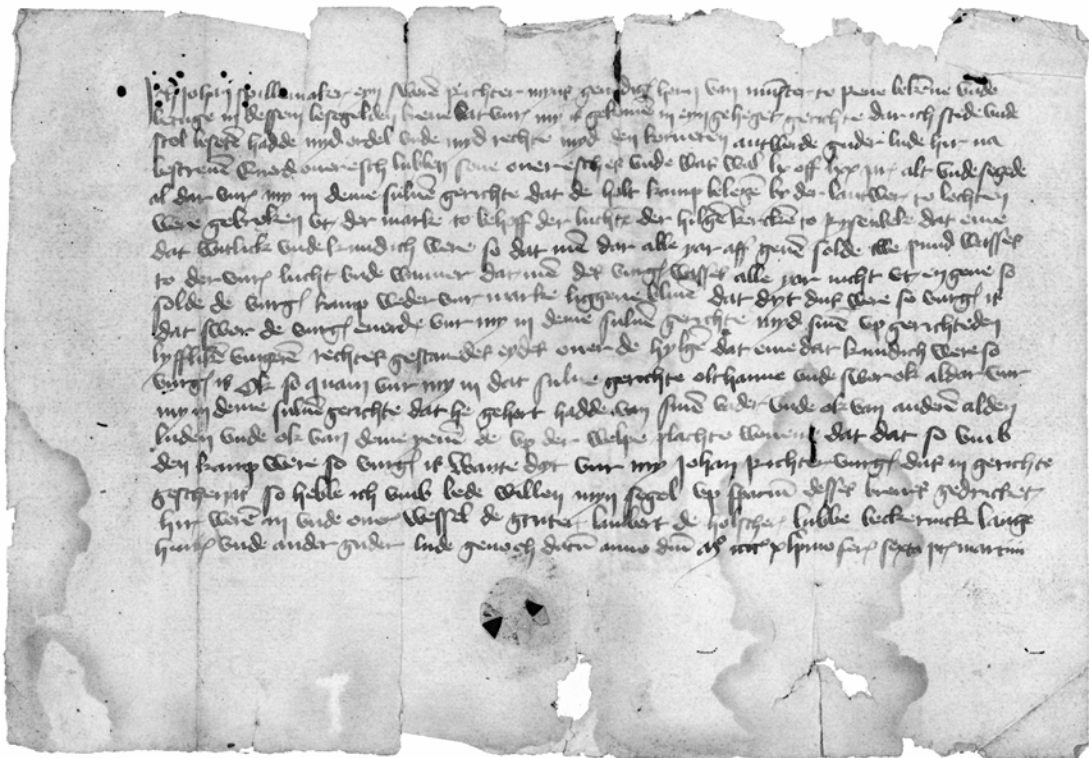 Ich Johan Spillemaker eyn sworen Richter myns genedigen hern van munster to bekenne vnde
betuge in dessem besegelden breue dat vur my is gekomen in eyn geheget gerichte dar ich stede vnde
stol beseten hadde myd ordel vnde myd rechte myd den kornoten antworde guder lude hir na
bescreuen Euerd ouer esch lubben sone ouer esches vnde was wal lx off lxx jar alt vnde segede
al dar vur my in deme suluen gerichte dat de holt kamp belegen by der lantwer to lechten
were gebroken vt der marke to behoff der luchte der hilgen kercken to dat eme
dat witlick vnde kundich were so dat men dar alle jar aff geuen solde twe pund wasses
to der vurs lucht vnde wanner dat men des vurgs wasses alle jar nicht vt en geue so
solde de vurgs kamp weder vur marke liggene bliuen dat dyt dus were so vurgs is
dat swor de vurgs euerd vur my in deme suluen gerichte myd sinen vp gerichteden
lyffliken vingeren rechtes gestaudes eydes ouer de hylgen dat eme dat kundich were so
vurgs is Ok so quam vur my in dat sulue gerichte olthanne vnde swor ok aldar vur
my in deme suluen gerichte dat he gehort hadde van sinen vader vnde ok van anderen alden
luden vnde ok van deme de vp der welpe plachte wonen dat dat so vmb
den kamp were so vurgs is Wante dyt vur my Johan Richter vurgs dus in gerichte
geschen is so hebbe ich vmb bede willen myn segel vp spacium desses breues gedrucket
hir weren an vnde ouer Wessel de gruter lambert de holscher lubbe beckerinck lange
hinr vnde ander guder lude genoch datum anno dni mo cccc xl primo ferª sexta martini